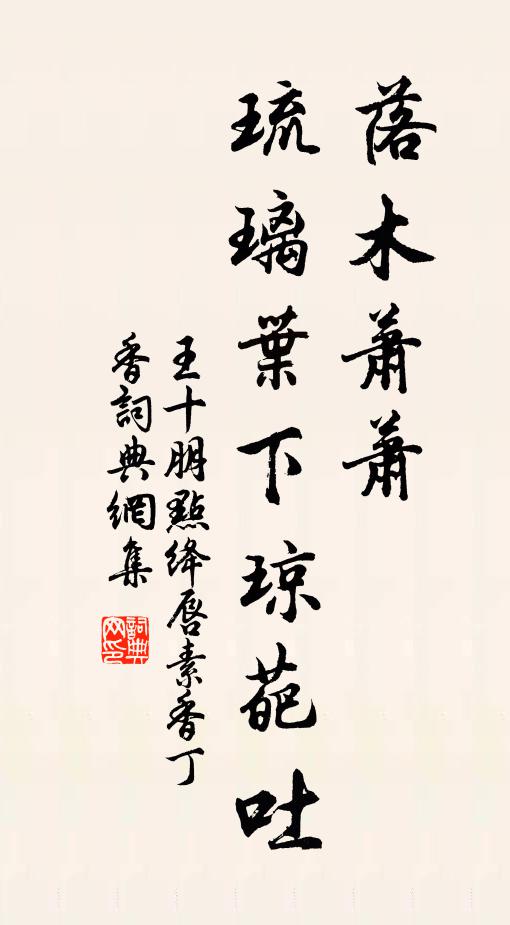 落木蕭蕭
琉璃葉下琼葩吐
王十朋點絳唇素香丁
香詞典網集
詞典
网印